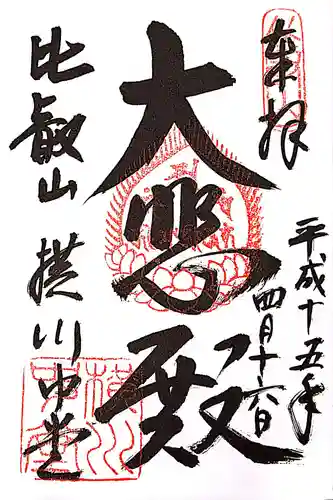 奉拝
平成十五年
四月十六日
大悲殿
比叡山 横川中堂